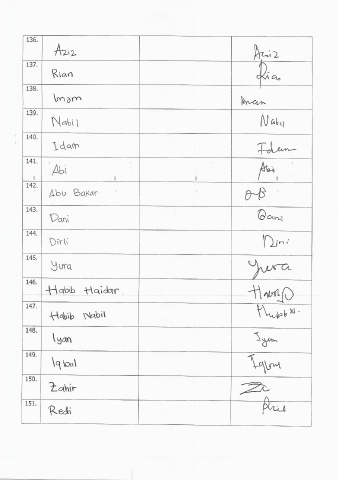 136. Aziz Aziz
137. Rian Rian
138. Imam Imam
139. Nabil Nabil
140. Idam Idam
141. Abi Abi
142. Abu Bakar
143. Dani Dani
144. Dirli
145. Yura Yura
146. Habib Haidar
147. Habib Nabil
148. Iyan Iyan
149. Iqbal Iqbal
150. Zahir
151. Redi